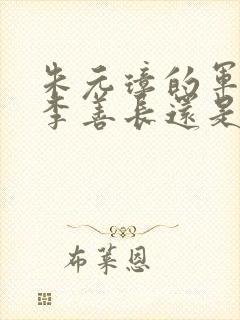 朱元璋的軍
李善長還是
布萊恩